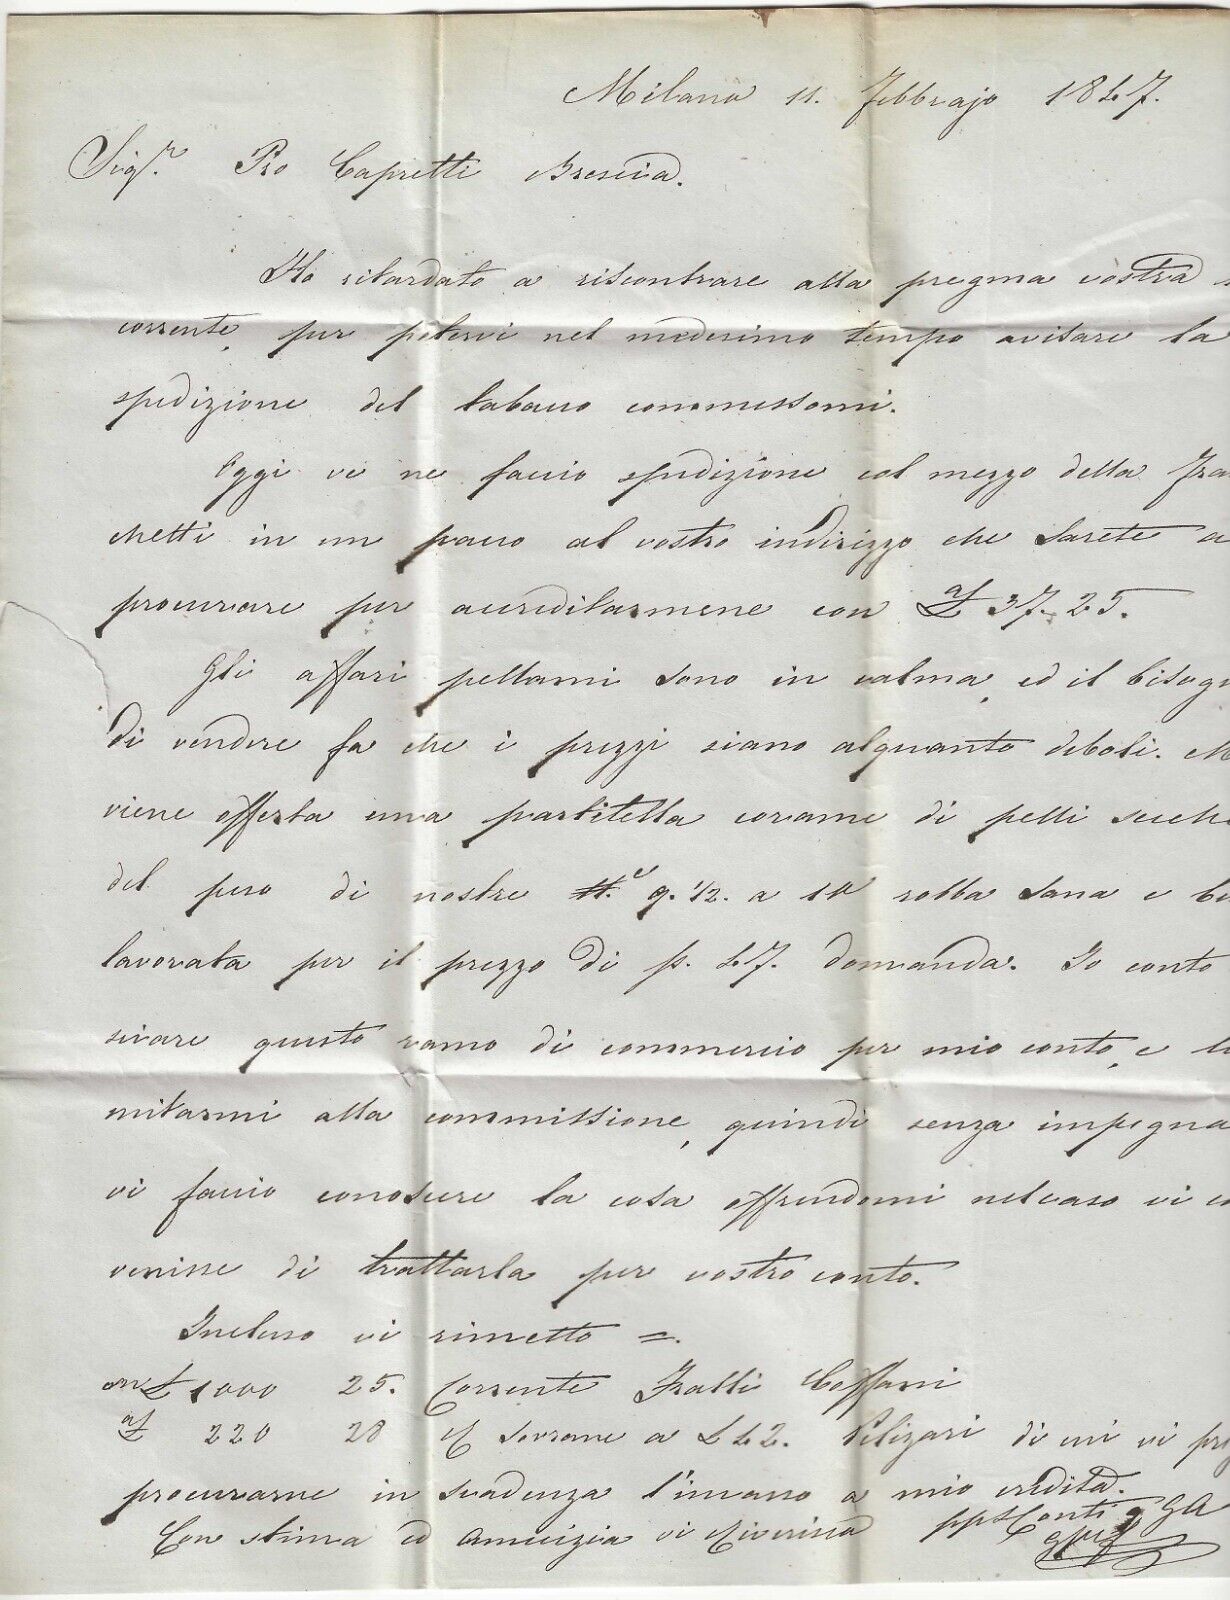 Milano 11. Febbrajo 1847.
Sigr. Pro Capretti Brescia.
Ho ritardato a riscontrare alla pregma vostra
corrente, per potervi nel medesimo tempo avisare la
spedizione del tabacco commessomi.
Oggi ve ne faccio spedizione col mezzo della Fra
chetti in un pacco al vostro indirizzo che sarete a
procurare per accreditarmene con aL 37.25.
Gli affari pellami sono in calma, ed il bisogn
di vendere fa che i prezzi siano alquanto deboli. M
viene offerta una partitella corame di pelli secche
del peso di nostre 9. 1/2. a 10 robba sana e be
lavorata per il prezzo di p. 47. domanda. Io conto
sivare questo ramo di commercio per mio conto, e li
mitarmi alla commissione, quindi senza impegna
vi faccio conoscere la cosa offrendomi nel caso vi co
venisse di trattarla per vostro conto.
Incluso vi rimetto =.
L 1000 25. Corrente Fratti Coffani
aL 220 28 sovrane a L 42. Pelizari di cui vi preg
procurarne in scadenza l'incasso a mio credito.
Con stima ed amicizia vi riverisco pp Conti